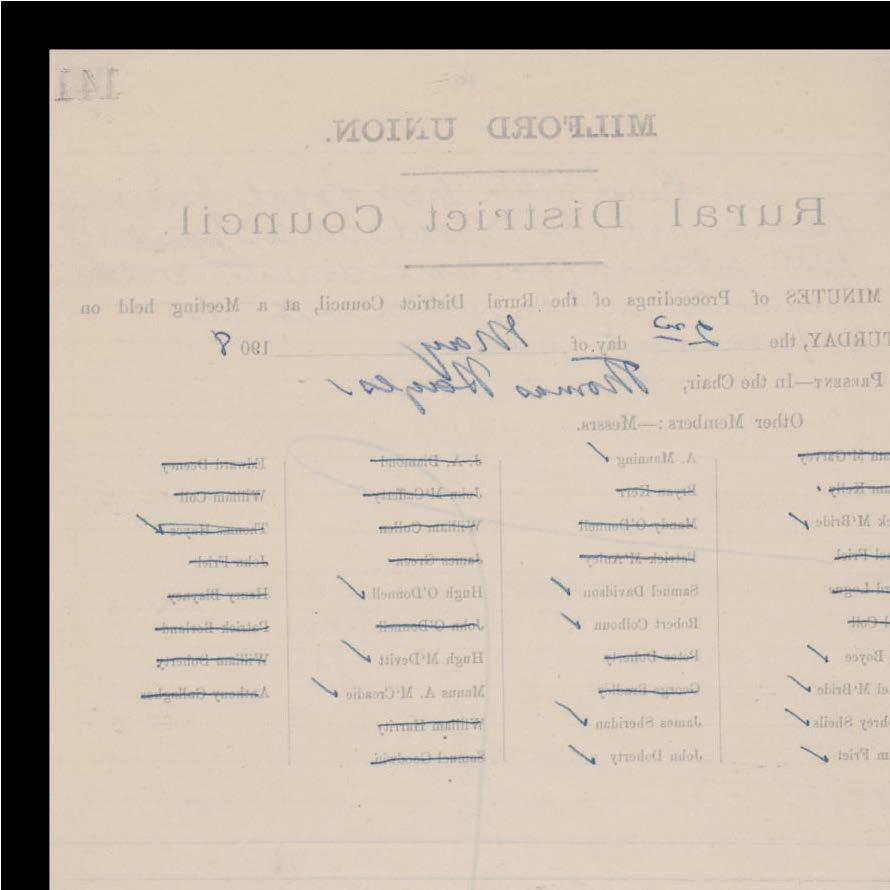 141
MILFORD UNION.
Rural District Council.
MINUTES of Proceedings of the Rural District Council, at a Meeting held on
TURDAY, the 2nd day of May 1908
PRESENT—In the Chair, Thomas Hayes
Other Members:—Messrs.
M'Garvey A. Manning J. A. Diamond Edward Deeney
Kelly Bryan Kerr John M'Cafferty William Coll
M'Bride O'Donnell William Cullen Thomas Hayes
Friel Patrick M'Auley James Green John Friel
Logue Samuel Davidson Hugh O'Donnell Henry Blayney
Coll Robert Colhoun John O'Donnell Patrick Borland
Boyce Peter Doherty Hugh M'Devitt William Doherty
M'Bride George Bradley Manus A. M'Creadie Anthony Gallagher
Sheils James Sheridan William Harrity
Friel John Doherty Samuel Goodwin